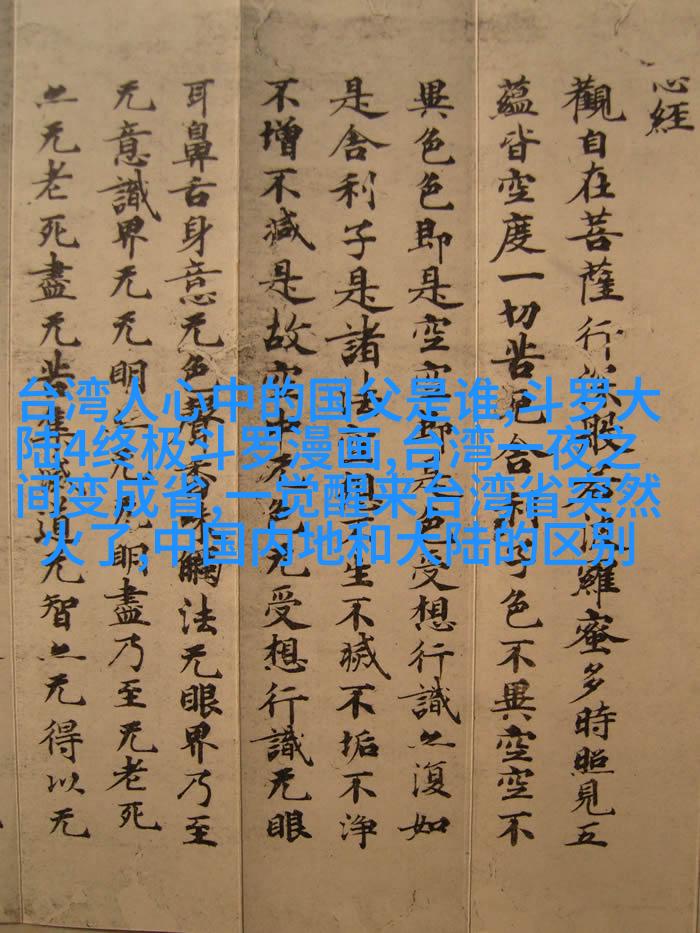 心經
觀自在菩薩行深般若波羅蜜多時照見五
蘊皆空度一切苦厄舍利子色不異空空不
異色色即是空空即是色受想行識亦復如
是舍利子是諸法空相不生不滅不垢不淨
不增不減是故空中无色无受想行識无眼
耳鼻舌身意无色聲香味觸法无眼界乃至
无意識界无无明亦无无明盡乃至无老死
亦无老死盡无苦集滅道无智亦无得以无
台湾人心中的国父是谁,斗罗大
陆4终极斗罗漫画,台湾一夜之
间变成省,一觉醒来台湾省突然
火了,中国内地和大陆的区别